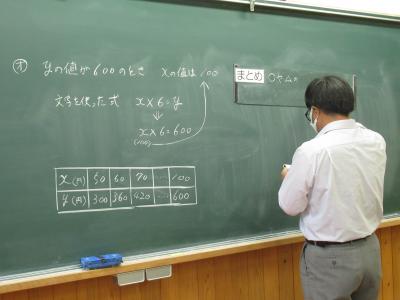 オ yの値が600のとき xの値は100
文字を使った式 x×6=y
↓
x×6=600
(100)
x(円) 50 60 70 … 100
y(円) 300 360 420 … 600
まとめ